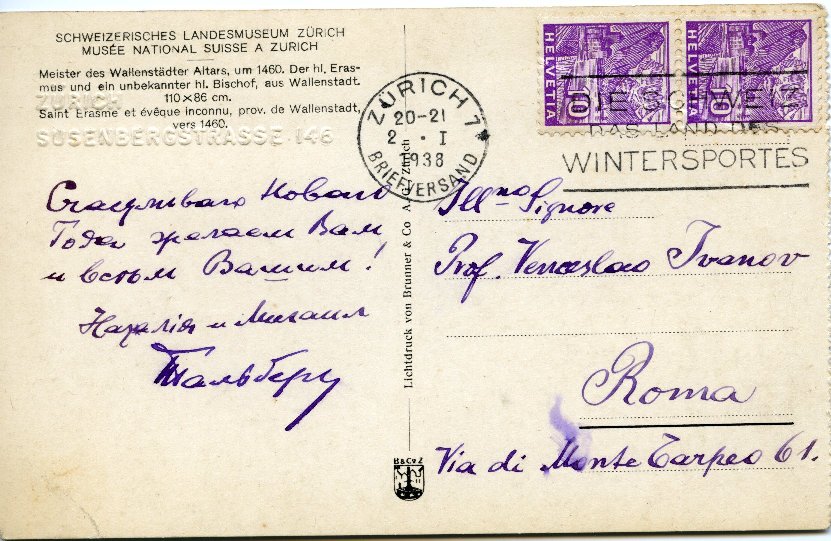 SCHWEIZERISCHES LANDESMUSEUM ZÜRICH
MUSÉE NATIONAL SUISSE A ZURICH
Meister des Wallenstädter Altars, um 1460. Der hl. Eras-
mus und ein unbekannter hl. Bischof, aus Wallenstadt.
110×86 cm.
Saint Erasme et évêque inconnu, prov. de Wallenstadt,
vers 1460.
ZÜRICH
SUSENBERGSTRASSE 146
Счастливаго Новаго
Года желаем Вам
и всѣм Вашим!
Наталія и Михаил
Тальберг
Lichtdruck von Brunner & Co A.G. Zürich
B&Co Z
ZÜRICH 7
20-21
2. I
1938
BRIEFVERSAND
HELVETIA
10
HELVETIA
10
DIE SCHWEIZ
DAS LAND DES
WINTERSPORTES
Ill.mo Signore
Prof. Venceslao Ivanov
Roma
Via di Monte Tarpeo 61.